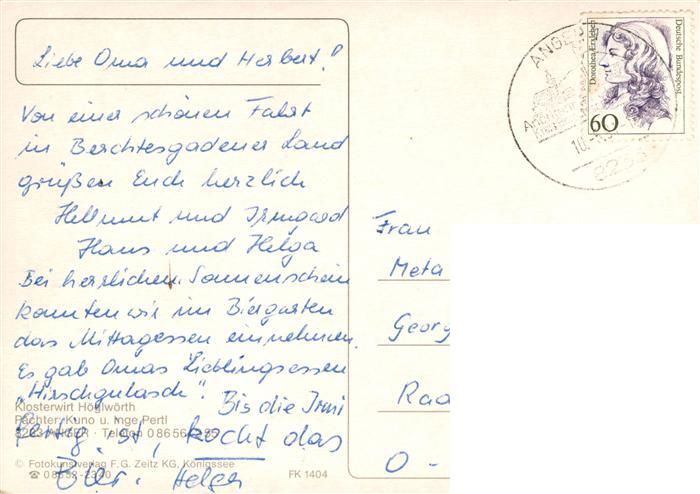 Liebe Oma und Herbert!
Von einer schönen Fahrt
in Berchtesgadener Land
grüßen Euch herzlich
Hellmut und Irmgard
Hans und Helga
Bei herrlichem Sonnenschein
konnten wir im Biergarten
das Mittagessen einnehmen.
Es gab Omas Lieblingsessen
"Hirschgulasch". Bis die Irmi
Klosterwirt Höglwörth
Pächter: Kuno u. Inge Pertl
8233 ANGER · Telefon 0 86 56/
fertig ist, kocht das
© Fotokunstverlag F. G. Zeitz KG, Königssee
☎ 0 86 52 -
FK 1404
Bier. Helger
ANGER
10.
8233
Dorothea Erxleben
Deutsche Bundespost
60
Frau
Meta
Georg
Rad
O -